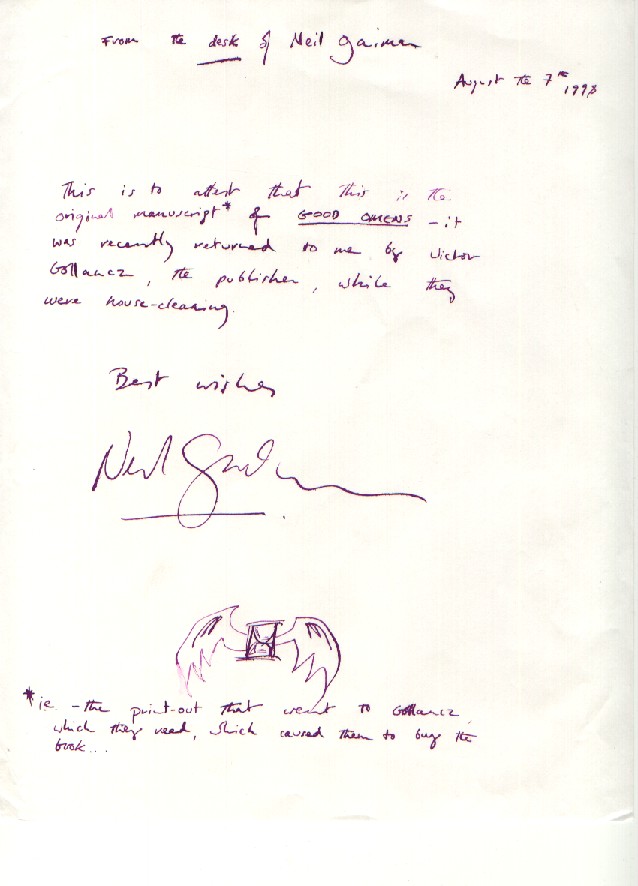 From the desk of Neil Gaiman
August the 7th 1993
This is to attest that this is the
original manuscript* of GOOD OMENS - it
was recently returned to me by Victor
Gollancz, the publisher, while they
were house-cleaning.
Best wishes
Neil Gaiman
*ie - the print-out that went to Gollancz,
which they read, which caused them to buy the
book...